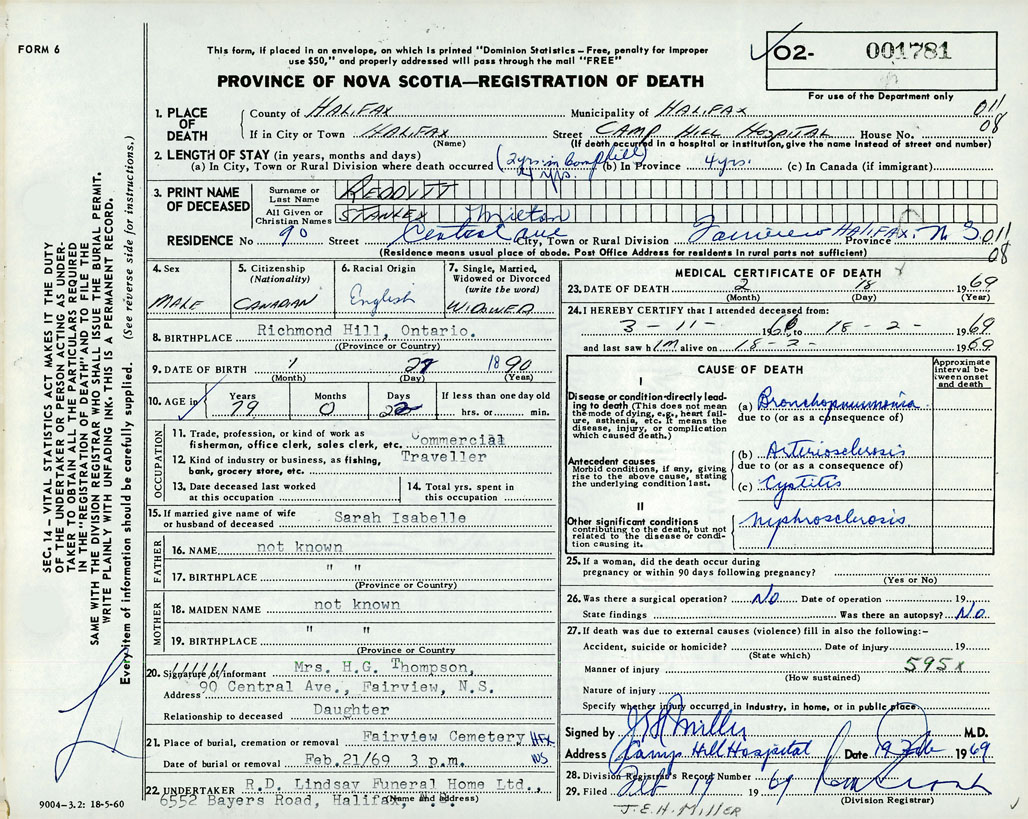 FORM 6
This form, if placed in an envelope, on which is printed "Dominion Statistics—Free, penalty for improper
use $50," and properly addressed will pass through the mail "FREE"
PROVINCE OF NOVA SCOTIA—REGISTRATION OF DEATH
02- 001781
For use of the Department only
SEC. 14 – VITAL STATISTICS ACT MAKES IT THE DUTY
OF THE UNDERTAKER OR PERSON ACTING AS UNDER-
TAKER TO OBTAIN ALL THE PARTICULARS REQUIRED
IN THE "REGISTRATION OF DEATH" AND TO FILE THE
SAME WITH THE DIVISION REGISTRAR WHO SHALL ISSUE THE BURIAL PERMIT.
WRITE PLAINLY WITH UNFADING INK. THIS IS A PERMANENT RECORD.
Every item of information should be carefully supplied. (See reverse side for instructions.)
1. PLACE OF DEATH
County of HALIFAX Municipality of HALIFAX 011
If in City or Town HALIFAX Street CAMP HILL HOSPITAL House No. 08
(Name) (If death occurred in a hospital or institution, give the name instead of street and number)
2. LENGTH OF STAY (in years, months and days)
(a) In City, Town or Rural Division where death occurred (2 yrs. in Camphill) 4 yrs. (b) In Province 4 yrs. (c) In Canada (if immigrant)
3. PRINT NAME OF DECEASED
Surname or Last Name REDDITT
All Given or Christian Names STANLEY Milton
RESIDENCE No 90 Street Central Ave City, Town or Rural Division Fairview HALIFAX Province N S 011
(Residence means usual place of abode. Post Office Address for residents in rural parts not sufficient) 08
4. Sex MALE
5. Citizenship (Nationality) CANADIAN
6. Racial Origin English
7. Single, Married, Widowed or Divorced (write the word) WIDOWED
8. BIRTHPLACE Richmond Hill, Ontario.
((Province or Country)
9. DATE OF BIRTH 1 27 1890
(Month) (Day) (Year)
10. AGE in Years 79 Months 0 Days 22 If less than one day old hrs. or min.
OCCUPATION
11. Trade, profession, or kind of work as fisherman, office clerk, sales clerk, etc. Commercial
12. Kind of industry or business, as fishing, bank, grocery store, etc. Traveller
13. Date deceased last worked at this occupation
14. Total yrs. spent in this occupation
15. If married give name of wife or husband of deceased Sarah Isabelle
FATHER
16. NAME not known
17. BIRTHPLACE " "
(Province or Country)
MOTHER
18. MAIDEN NAME not known
19. BIRTHPLACE " "
(Province or Country)
20. Signature of informant Mrs. H.G. Thompson,
Address 90 Central Ave., Fairview, N.S.
Relationship to deceased Daughter
21. Place of burial, cremation or removal Fairview Cemetery HFX
Date of burial or removal Feb.21/69 3 p.m. NS
22. UNDERTAKER R.D. Lindsay Funeral Home Ltd.,
6552 Bayers Road, Halifax, N.S.
(Name and Address)
9004–3.2: 18-5-60
MEDICAL CERTIFICATE OF DEATH
23. DATE OF DEATH 2 18 1969
(Month) (Day) (Year)
24. I HEREBY CERTIFY that I attended deceased from:
3 - 11 - 1966 to 18 - 2 - 1969
and last saw him alive on 18 - 2 - 1969
CAUSE OF DEATH
Approximate interval between onset and death
I
Disease or condition directly leading to death (This does not mean the mode of dying, e.g., heart failure, asthenia, etc. It means the disease, injury, or complication which caused death.)
(a) Bronchopneumonia
due to (or as a consequence of)
Antecedent causes
Morbid conditions, if any, giving rise to the above cause, stating the underlying condition last.
(b) Arteriosclerosis
due to (or as a consequence of)
(c) Cystitis
II
Other significant conditions contributing to the death, but not related to the disease or condition causing it.
nephrosclerosis
25. If a woman, did the death occur during
pregnancy or within 90 days following pregnancy?
(Yes or No)
26. Was there a surgical operation? No Date of operation 19
State findings Was there an autopsy? No
27. If death was due to external causes (violence) fill in also the following:–
Accident, suicide or homicide? Date of injury 19
(State which)
Manner of injury 595x
(How sustained)
Nature of injury
Specify whether injury occurred in industry, in home, or in public place
Signed by J E H Miller M.D.
Address Camp Hill Hospital Date 19 Feb 1969
28. Division Registrar's Record Number
29. Filed Feb 19 1969
(Division Registrar)
J.E.H. MILLER